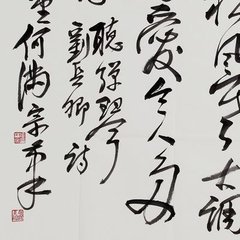 松風寒古調
愛今人多
聽彈琴
劉長卿詩
何滿宗書